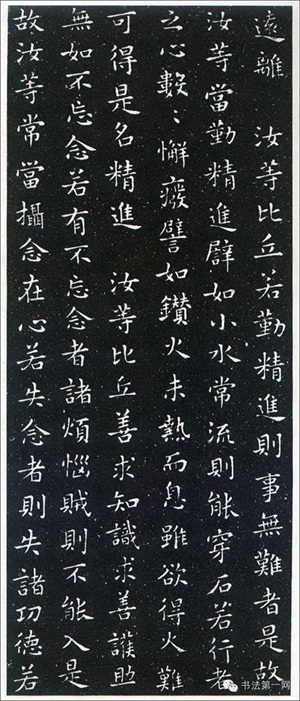 遠離　汝等比丘若勤精進則事無難者是故
汝等當勤精進譬如小水常流則能穿石若行者
之心數〻懈癈譬如鑚火未熱而息雖欲得火難
可得是名精進　汝等比丘善求知識求善護助
無如不忘念若有不忘念者諸煩惱賊則不能入是
故汝等常當攝念在心若失念者則失諸功德若
书法第一网